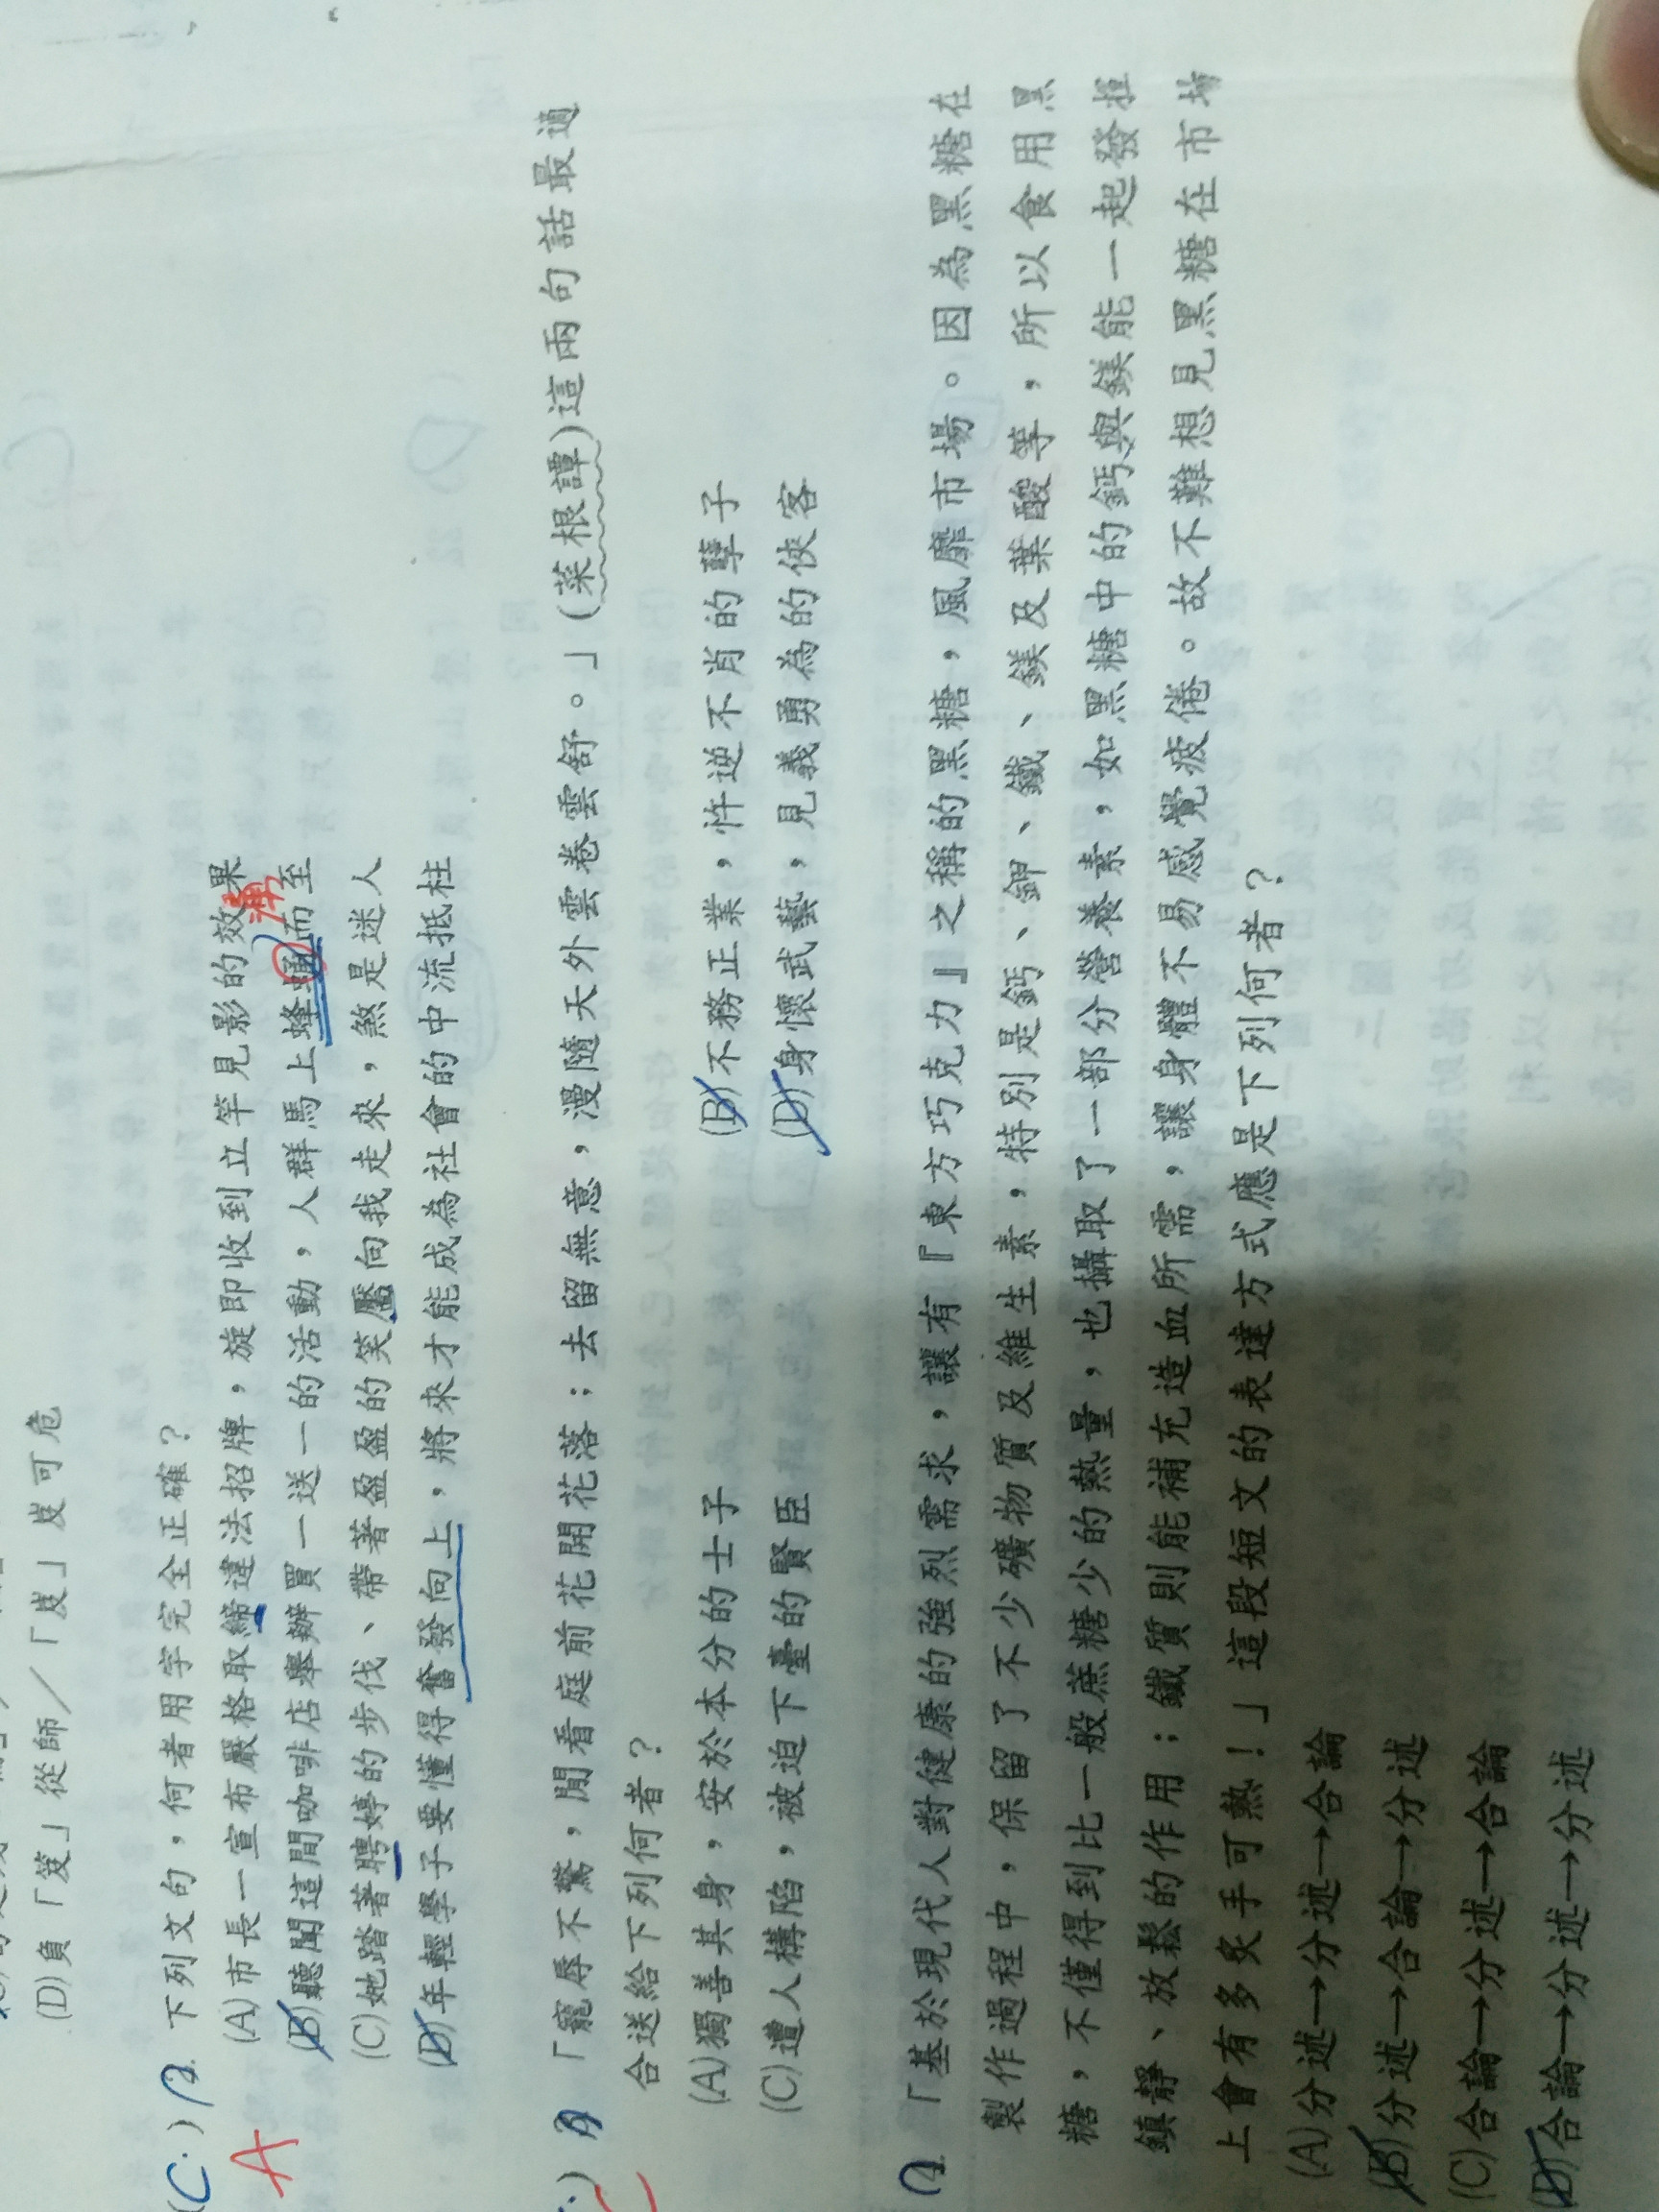 (D)負「笈」從師／「岌」岌可危
(C.) 下列文句，何者用字完全正確？
A
(A)市長一宣布嚴格取締違法招牌，旋即收到立竿見影的效果
(B)聽聞這間咖啡店舉辦買一送一的活動，人群馬上蜂踴而至
湧
(C)她踏著聘婷的步伐、帶著盈盈的笑靨向我走來，煞是迷人
(D)年輕學子要懂得奮發向上，將來才能成為社會的中流抵柱
「寵辱不驚，閒看庭前花開花落；去留無意，漫隨天外雲卷雲舒。」(菜根譚)這兩句話最適
合送給下列何者？
(A)獨善其身，安於本分的士子
(B)不務正業，忤逆不肖的孽子
(C)遭人構陷，被迫下臺的賢臣
(D)身懷武藝，見義勇為的俠客
「基於現代人對健康的強烈需求，讓有『東方巧克力』之稱的黑糖，風靡市場。因為黑糖在
製作過程中，保留了不少礦物質及維生素，特別是鈣、鉀、鐵、鎂及葉酸等，所以食用黑
糖，不僅得到比一般蔗糖少的熱量，也攝取了一部分營養素，如黑糖中的鈣與鎂能一起發揮
鎮靜、放鬆的作用；鐵質則能補充造血所需，讓身體不易感覺疲倦。故不難想見黑糖在市場
上會有多炙手可熱！」這段短文的表達方式應是下列何者？
(A)分述→分述→合論
(B)分述→合論→分述
(C)合論→分述→合論
(D)合論→分述→分述